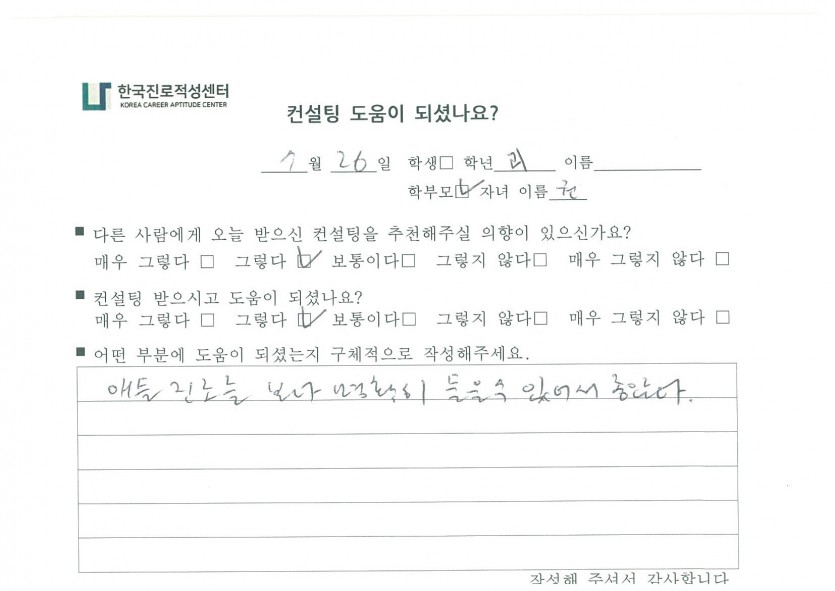 한국진로적성센터
KOREA CAREER APTITUDE CENTER
컨설팅 도움이 되셨나요?
월 26 일 학생□ 학년 이름
학부모☑ 자녀 이름 권
■ 다른 사람에게 오늘 받으신 컨설팅을 추천해주실 의향이 있으신가요?
매우 그렇다 □ 그렇다 ☑ 보통이다□ 그렇지 않다□ 매우 그렇지 않다 □
■ 컨설팅 받으시고 도움이 되셨나요?
매우 그렇다 □ 그렇다 ☑ 보통이다□ 그렇지 않다□ 매우 그렇지 않다 □
■ 어떤 부분에 도움이 되셨는지 구체적으로 작성해주세요.
애들 진로를 보다 명확히 들을수 있어서 좋았다.
작성해 주셔서 감사합니다